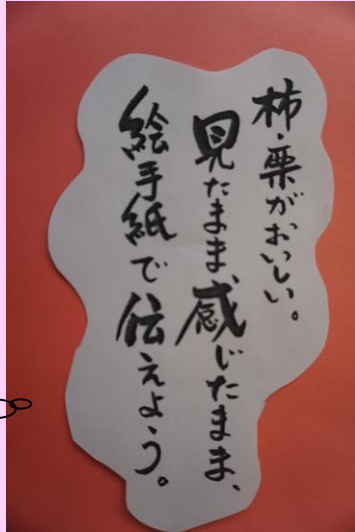 柿・栗がおいしい。
見たまま、感じたまま、
絵手紙で伝えよう。